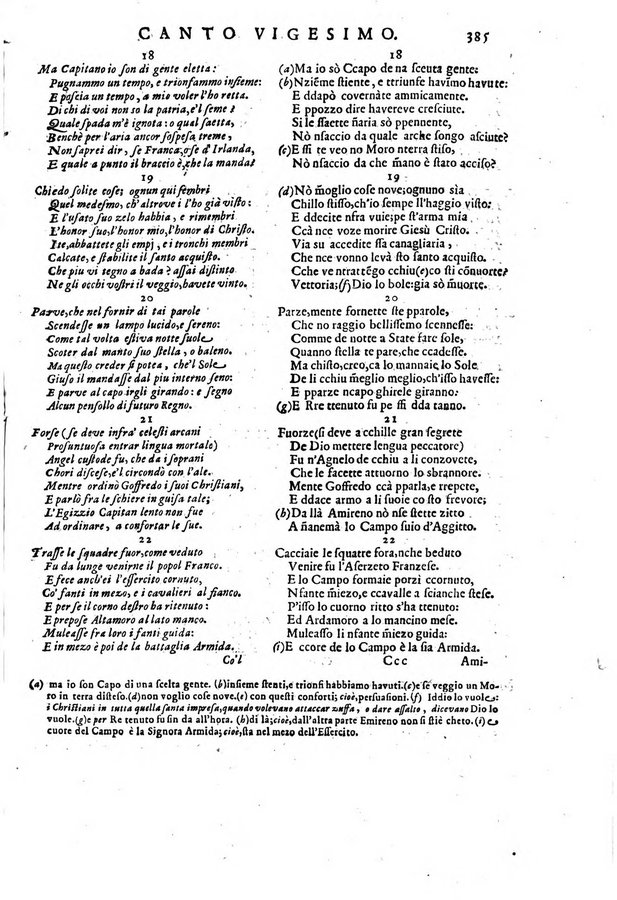 CANTO VIGESIMO. 385
18
Ma Capitano io son di gente eletta:
Pugnammo un tempo, e trionfammo insieme:
E poscia un tempo, a mio voler l'ho retta.
Di chi di voi non so la patria, e'l seme?
Quale spada m'è ignota: o qual saetta,
Benchè per l'aria ancor sospesa treme,
Non saprei dir, se Franca, o se d'Irlanda,
E quale a punto il braccio è, che la manda?
19
Chiedo solite cose; ognun qui sembri
Quel medesmo, ch'altrove i l'ho già visto:
E l'usato suo zelo habbia, e rimembri
L'honor suo, l'honor mio, l'honor di Christo.
Ite, abbattete gli empj, e i tronchi membri
Calcate, e stabilite il santo acquisto.
Che piu vi tegno a bada? assai distinto
Ne gli occhi vostri il veggio, havete vinto.
20
Parve, che nel fornir di tai parole
Scendesse un lampo lucido, e sereno:
Come tal volta estiva notte suole
Scoter dal manto suo stella, o baleno.
Ma questo creder si potea, che'l Sole
Giuso il mandasse dal piu interno seno:
E parve al capo irgli girando: e segno
Alcun pensollo di futuro Regno.
21
Forse (se deve infra' celesti arcani
Prosuntuosa entrar lingua mortale)
Angel custode fu, che da i soprani
Chori discese, e'l circondò con l'ale.
Mentre ordinò Goffredo i suoi Christiani,
E parlò fra le schiere in guisa tale;
L'Egizzio Capitan lento non fue
Ad ordinare, a confortar le sue.
22
Trasse le squadre fuor, come veduto
Fu da lunge venirne il popol Franco.
E fece anch'ei l'essercito cornuto,
Co' fanti in mezo, e i cavalieri al fianco.
E per se il corno destro ha ritenuto:
E prepose Altamoro al lato manco.
Muleasse fra loro i fanti guida:
E in mezo è poi de la battaglia Armida.
Co'l
18
(a) Ma io sò Ccapo de na sceuta gente:
(b) Nziẽme stiente, e triunse havimo havute:
E ddapò covernàte ammicamente.
E ppozzo dire havereve cresciute.
Si le ssaette ñaria sò ppennente,
Nò nsaccio da quale arche songo asciute?
(c) E sti te veo no Moro nterra stiso,
Nò nsaccio da che m̃ano è stato acciso?
19
(d) Nò m̃oglio cose nove; ognuno sia
Chillo stisso, ch'io sempe ll'haggio visto:
E ddecite nfra vuie; pe st'arma mia
Ccà nce voze morire Giesù Cristo.
Via su accedite ssa canagliaria,
Che nce vonno levà sto santo acquisto.
Cche ve ntrattẽgo cchiu (e) co sti cõnuorte?
Vettoria; (f) Dio lo bole: già sò m̃uorte.
20
Parze, mente fornette ste pparole,
Che no raggio bellissemo scennesse:
Comme de notte a State fare sole,
Quanno stella te pare, che ccadesse.
Ma chisto, creo, ca lo mannaie, lo Sole
De li cchiu m̃eglio meglio, ch'isso havesse:
E pparze ncapo ghirele giranno:
(g) E Rre ttenuto fu pe ssi dda tanno.
21
Fuorze (si deve a cchille gran segrete
De Dio mettere lengua peccatore)
Fu n'Agnelo de cchiu a li conzovete,
Che le facette attuorno lo sbrannore.
Mente Goffredo ccà pparla, e rrepete,
E ddace armo a li suoie co sto frevore;
(h) Da llà Amireno nò nse stette zitto
A ñanemà lo Campo suio d'Aggitto.
22
Cacciaie le squatre fora, nche beduto
Venire fu l'Aserzeto Franzese.
E lo Campo formaie porzì ccornuto,
Nfante m̃iezo, e ccavalle a scianche stese.
P'isso lo cuorno ritto s'ha ttenuto:
Ed Ardamoro a lo mancino mese.
Muleasso li nfante m̃iezo guida:
(i) E ccore de lo Campo è la sia Armida.
Ccc Ami-
(a) ma io son Capo di una scelta gente. (b) insieme stenti, e trionfi habbiamo havuti. (c) e se veggio un Mo-
ro in terra disteso. (d) non voglio cose nove. (e) con questi conforti; cioè, persuasioni. (f) Iddio lo vuole:
i Christiani in tutta quella santa impresa, quando volevano attaccar zuffa, o dare assalto, dicevano Dio lo
vuole. (g) e per Re tenuto fu sin da all'hora. (h) di là; cioè, dall'altra parte Emireno non si stiè cheto. (i) e
cuore del Campo è la Signora Armida; cioè, sta nel mezo dell'Essercito.